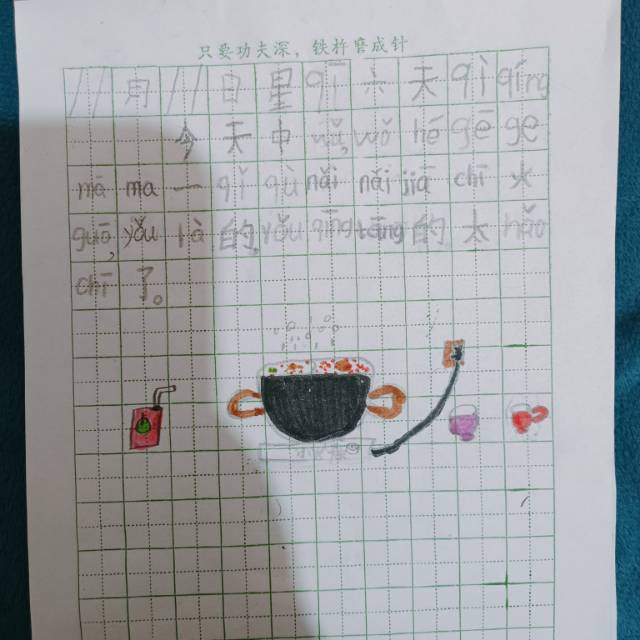 只要功夫深，铁杵磨成针
11月11日星qī六天qì qíng
今天中wǔ,wǒ hé gē ge
mā ma一qǐ qù nǎi nǎi jiā chī火
guō,yǒu là的,yǒu qīng tāng的,太hǎo
chī了。